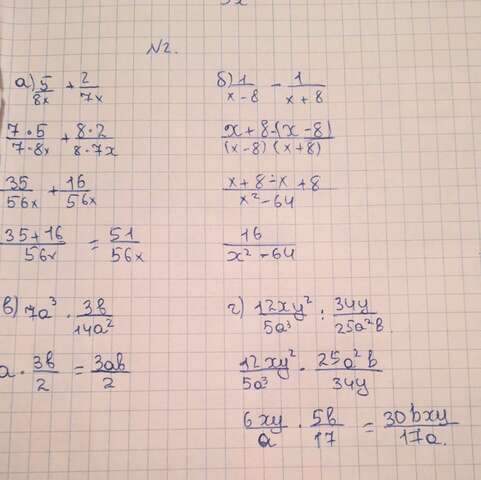 5x
N2.
а) 5/8x + 2/7x
7·5/7·8x + 8·2/8·7x
35/56x + 16/56x
35+16/56x = 51/56x
б) 1/x-8 - 1/x+8
x+8-(x-8)/(x-8)(x+8)
x+8-x+8/x²-64
16/x²-64
в) 7a³ · 3b/14a²
a · 3b/2 = 3ab/2
г) 12xy²/5a³ : 34y/25a²b.
12xy²/5a³ · 25a²b/34y
6xy/a · 5b/17 = 30bxy/17a.